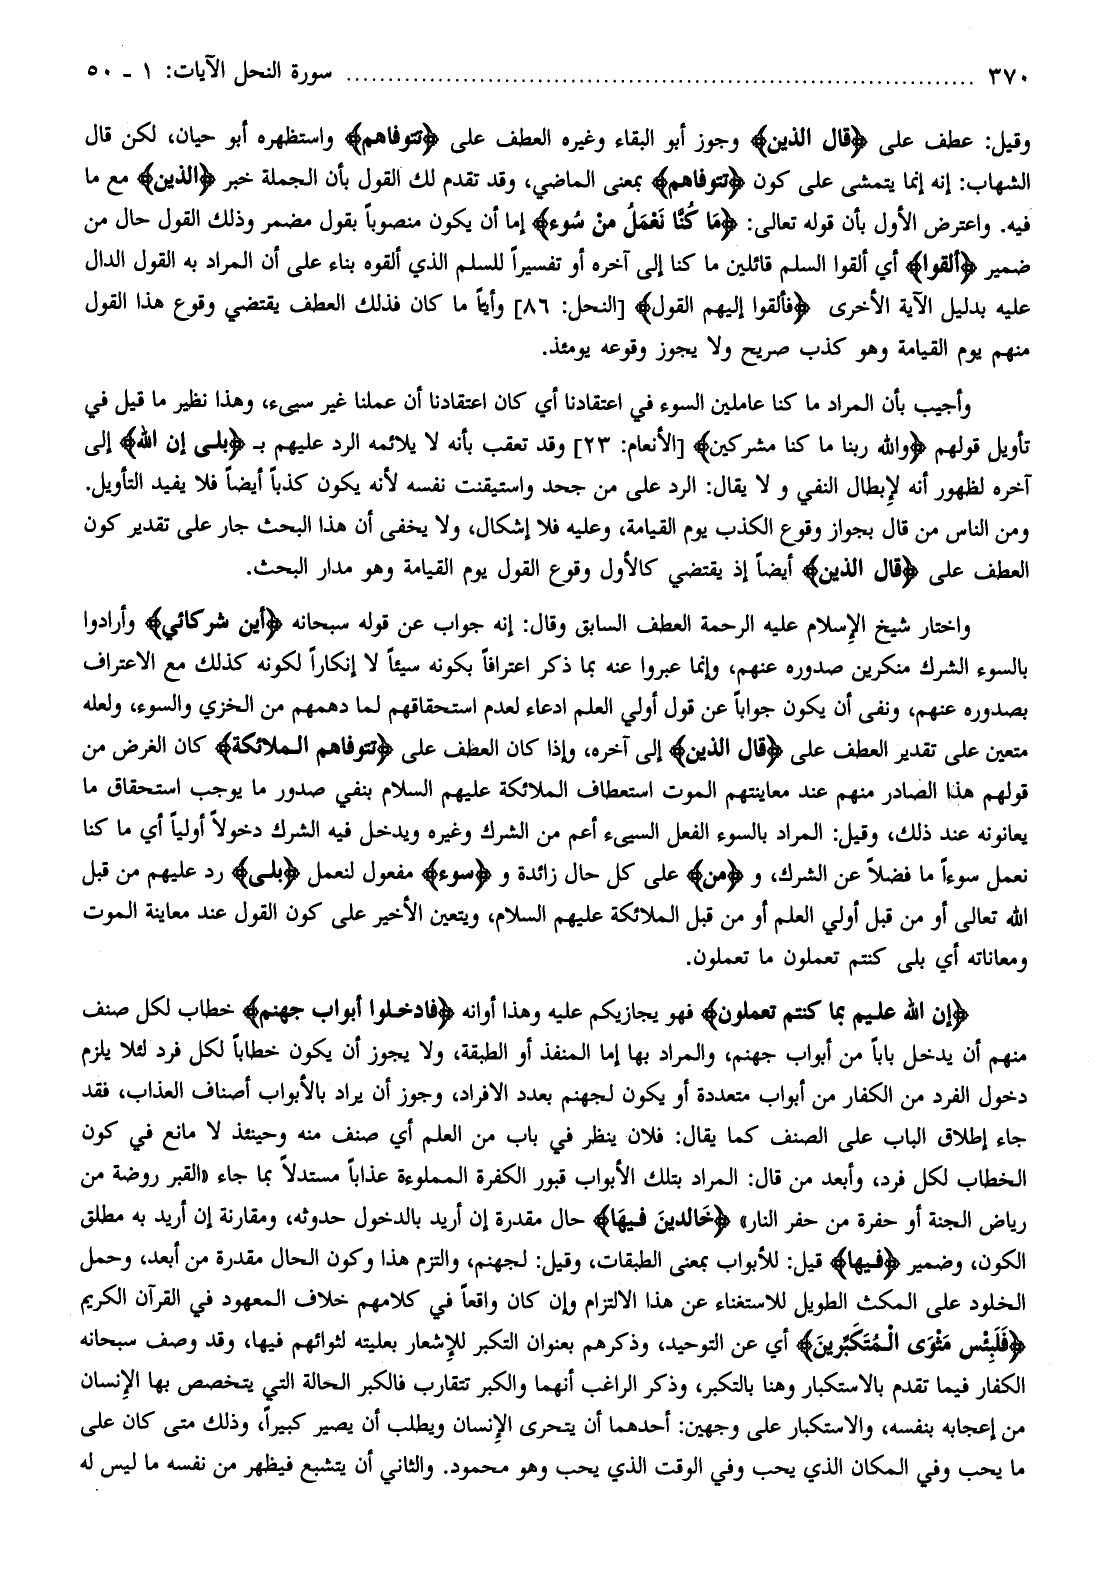 ٣٧٠ ........................................................................................... سورة النحل الآيات: ١ ـ ٥٠
وقيل: عطف على ﴿قال الذين﴾ وجوز أبو البقاء وغيره العطف على ﴿تتوفاهم﴾ واستظهره أبو حيان، لكن قال
الشهاب: إنه إنما يتمشى على كون ﴿تتوفاهم﴾ بمعنى الماضي، وقد تقدم لك القول بأن الجملة خبر ﴿الذين﴾ مع ما
فيه. واعترض الأول بأن قوله تعالى: ﴿مَا كُنَّا نَعْمَلُ مِنْ سُوء﴾ إما أن يكون منصوباً بقول مضمر وذلك القول حال من
ضمير ﴿ألقوا﴾ أي ألقوا السلم قائلين ما كنا إلى آخره أو تفسيراً للسلم الذي ألقوه بناء على أن المراد به القول الدال
عليه بدليل الآية الأخرى ﴿فألقوا إليهم القول﴾ [النحل: ٨٦] وأياً ما كان فذلك العطف يقتضي وقوع هذا القول
منهم يوم القيامة وهو كذب صريح ولا يجوز وقوعه يومئذ.
وأجيب بأن المراد ما كنا عاملين السوء في اعتقادنا أي كان اعتقادنا أن عملنا غير سيىء، وهذا نظير ما قيل في
تأويل قولهم ﴿والله ربنا ما كنا مشركين﴾ [الأنعام: ٢٣] وقد تعقب بأنه لا يلائمه الرد عليهم بـ ﴿بلى إن الله﴾ إلى
آخره لظهور أنه لإبطال النفي و لا يقال: الرد على من جحد واستيقنت نفسه لأنه يكون كذباً أيضاً فلا يفيد التأويل.
ومن الناس من قال بجواز وقوع الكذب يوم القيامة، وعليه فلا إشكال، ولا يخفى أن هذا البحث جار على تقدير كون
العطف على ﴿قال الذين﴾ أيضاً إذ يقتضي كالأول وقوع القول يوم القيامة وهو مدار البحث.
واختار شيخ الإسلام عليه الرحمة العطف السابق وقال: إنه جواب عن قوله سبحانه ﴿أين شركائي﴾ وأرادوا
بالسوء الشرك منكرين صدوره عنهم، وإنما عبروا عنه بما ذكر اعترافاً بكونه سيئاً لا إنكاراً لكونه كذلك مع الاعتراف
بصدوره عنهم، ونفى أن يكون جواباً عن قول أولي العلم ادعاء لعدم استحقاقهم لما دهمهم من الخزي والسوء، ولعله
متعين على تقدير العطف على ﴿قال الذين﴾ إلى آخره، وإذا كان العطف على ﴿تتوفاهم الملائكة﴾ كان الغرض من
قولهم هذا الصادر منهم عند معاينتهم الموت استعطاف الملائكة عليهم السلام بنفي صدور ما يوجب استحقاق ما
يعانونه عند ذلك، وقيل: المراد بالسوء الفعل السيىء أعم من الشرك وغيره ويدخل فيه الشرك دخولاً أولياً أي ما كنا
نعمل سوءاً ما فضلاً عن الشرك، و ﴿من﴾ على كل حال زائدة و ﴿سوء﴾ مفعول لنعمل ﴿بلى﴾ رد عليهم من قبل
الله تعالى أو من قبل أولي العلم أو من قبل الملائكة عليهم السلام، ويتعين الأخير على كون القول عند معاينة الموت
ومعاناته أي بلى كنتم تعملون ما تعملون.
﴿إن الله عليم بما كنتم تعملون﴾ فهو يجازيكم عليه وهذا أوانه ﴿فادخلوا أبواب جهنم﴾ خطاب لكل صنف
منهم أن يدخل باباً من أبواب جهنم، والمراد بها إما المنفذ أو الطبقة، ولا يجوز أن يكون خطاباً لكل فرد لئلا يلزم
دخول الفرد من الكفار من أبواب متعددة أو يكون لجهنم بعدد الافراد، وجوز أن يراد بالأبواب أصناف العذاب، فقد
جاء إطلاق الباب على الصنف كما يقال: فلان ينظر في باب من العلم أي صنف منه وحينئذ لا مانع في كون
الخطاب لكل فرد، وأبعد من قال: المراد بتلك الأبواب قبور الكفرة المملوءة عذاباً مستدلاً بما جاء «القبر روضة من
رياض الجنة أو حفرة من حفر النار» ﴿خَالدينَ فيهَا﴾ حال مقدرة إن أريد بالدخول حدوثه، ومقارنة إن أريد به مطلق
الكون، وضمير ﴿فيها﴾ قيل: للأبواب بمعنى الطبقات، وقيل: لجهنم، والتزم هذا وكون الحال مقدرة من أبعد، وحمل
الخلود على المكث الطويل للاستغناء عن هذا الالتزام وإن كان واقعاً في كلامهم خلاف المعهود في القرآن الكريم
﴿فَلَبِئْس مَثْوَى الْمُتَكَبِّرينَ﴾ أي عن التوحيد، وذكرهم بعنوان التكبر للإشعار بعليته لثوائهم فيها، وقد وصف سبحانه
الكفار فيما تقدم بالاستكبار وهنا بالتكبر، وذكر الراغب أنهما والكبر تتقارب فالكبر الحالة التي يتخصص بها الإنسان
من إعجابه بنفسه، والاستكبار على وجهين: أحدهما أن يتحرى الإنسان ويطلب أن يصير كبيراً، وذلك متى كان على
ما يحب وفي المكان الذي يحب وفي الوقت الذي يحب وهو محمود. والثاني أن يتشبع فيظهر من نفسه ما ليس له